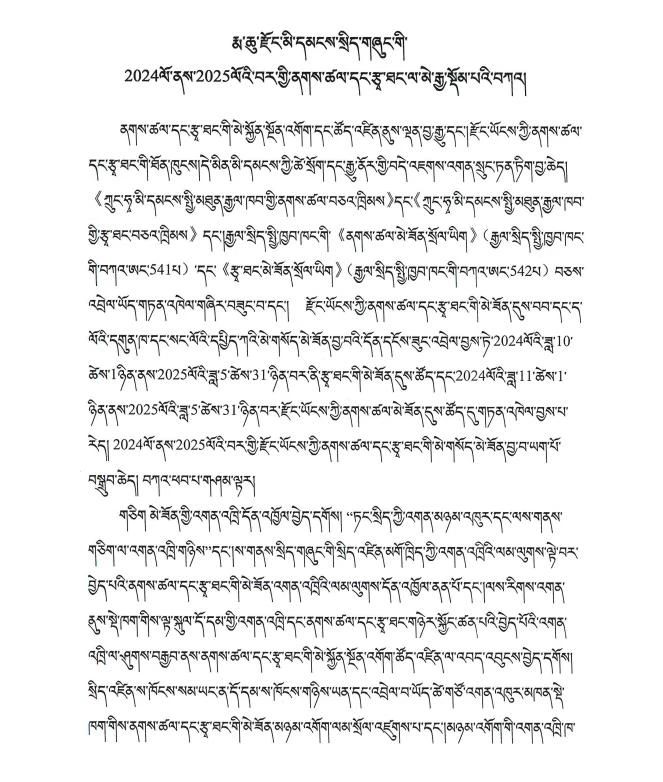 རྨ་ཆུ་རྫོང་མི་དམངས་སྲིད་གཞུང་གི་
2024ལོ་ནས་2025ལོའི་བར་གྱི་ནགས་ཚལ་དང་རྩྭ་ཐང་ལ་མེ་རྒྱུ་སྡོམ་པའི་བཀའ།
ནགས་ཚལ་དང་རྩྭ་ཐང་གི་མེ་སྐྱོན་སྔོན་འགོག་དང་ཚོད་འཛིན་ནུས་ལྡན་བྱ་རྒྱུ་དང་།རྫོང་ཡོངས་ཀྱི་ནགས་ཚལ་
དང་རྩྭ་ཐང་གི་ཐོན་ཁུངས།དེ་མིན་མི་དམངས་ཀྱི་ཚེ་སྲོག་དང་རྒྱུ་ནོར་གྱི་བདེ་འཇགས་འགན་སྲུང་ཏན་ཏིག་བྱ་ཆེད།
《ཀྲུང་ཧྭ་མི་དམངས་སྤྱི་མཐུན་རྒྱལ་ཁབ་གྱི་ནགས་ཚལ་བཅའ་ཁྲིམས》དང་《ཀྲུང་ཧྭ་མི་དམངས་སྤྱི་མཐུན་རྒྱལ་ཁབ་
གྱི་རྩྭ་ཐང་བཅའ་ཁྲིམས》དང་།རྒྱལ་སྲིད་སྤྱི་ཁྱབ་ཁང་གི་《ནགས་ཚལ་མེ་ཟོན་སྲོལ་ཡིག》（རྒྱལ་སྲིད་སྤྱི་ཁྱབ་ཁང་
གི་བཀའ་ཨང་541པ）་དང་《རྩྭ་ཐང་མེ་ཟོན་སྲོལ་ཡིག》（རྒྱལ་སྲིད་སྤྱི་ཁྱབ་ཁང་གི་བཀའ་ཨང་542པ）བཅས་
འབྲེལ་ཡོད་གཏན་འཁེལ་གཞིར་བཟུང་བ་དང་། རྫོང་ཡོངས་ཀྱི་ནགས་ཚལ་དང་རྩྭ་ཐང་གི་མེ་ཟོན་དུས་བབ་དང་ད་
ལོའི་དགུན་ཁ་དང་སང་ལོའི་དཔྱིད་ཀའི་མེ་གསོད་མེ་ཟོན་བྱ་བའི་དོན་དངོས་ཟུང་འབྲེལ་བྱས་ཏེ་2024ལོའི་ཟླ་10་
ཚེས་1ཉིན་ནས་2025ལོའི་ཟླ་5་ཚེས་31་ཉིན་བར་ནི་རྩྭ་ཐང་གི་མེ་ཟོན་དུས་ཚོད་དང་2024ལོའི་ཟླ་11་ཚེས་1་
ཉིན་ནས་2025ལོའི་ཟླ་5་ཚེས་31་ཉིན་བར་རྫོང་ཡོངས་ཀྱི་ནགས་ཚལ་མེ་ཟོན་དུས་ཚོད་དུ་གཏན་འཁེལ་བྱས་པ་
རེད། 2024ལོ་ནས་2025ལོའི་བར་གྱི་རྫོང་ཡོངས་ཀྱི་ནགས་ཚལ་དང་རྩྭ་ཐང་གི་མེ་གསོད་མེ་ཟོན་བྱ་བ་ཡག་པོ་
བསྒྲུབ་ཆེད། བཀའ་ཕབ་པ་གཤམ་ལྟར།
གཅིག མེ་ཟོན་གྱི་འགན་འཁྲི་དོན་འཁྱོལ་བྱེད་དགོས། “ཏང་སྲིད་ཀྱི་འགན་མཉམ་འཁུར་དང་ལས་གནས་
གཅིག་ལ་འགན་འཁྲི་གཉིས”དང་།ས་གནས་སྲིད་གཞུང་གི་སྲིད་འཛིན་མགོ་ཁྲིད་ཀྱི་འགན་འཁྲིའི་ལམ་ལུགས་ལྟེ་བར་
བྱེད་པའི་ནགས་ཚལ་དང་རྩྭ་ཐང་གི་མེ་ཟོན་འགན་འཁྲིའི་ལམ་ལུགས་དོན་འཁྱོལ་ནན་པོ་དང་།ལས་རིགས་འགན་
ནུས་སྡེ་ཁག་གིས་ལྟ་སྐུལ་དོ་དམ་གྱི་འགན་འཁྲི་དང་ནགས་ཚལ་དང་རྩྭ་ཐང་གཉེར་སྐྱོང་ཚན་པའི་བྱེད་པོའི་འགན་
འཁྲི་ལ་ཤུགས་བརྒྱབ་ནས་ནགས་ཚལ་དང་རྩྭ་ཐང་གི་མེ་སྐྱོན་སྔོན་འགོག་ཚོད་འཛིན་ལ་འབད་འབུངས་བྱེད་དགོས།
སྲིད་འཛིན་ས་ཁོངས་སམ་ཡང་ན་དོ་དམ་ས་ཁོངས་གཉིས་ཡན་དང་འབྲེལ་བ་ཡོད་ཚེ་གཙོ་འགན་འཁུར་མཁན་སྡེ་
ཁག་གིས་ནགས་ཚལ་དང་རྩྭ་ཐང་གི་མེ་ཟོན་མཉམ་འགོག་ལམ་སྲོལ་འཛུགས་པ་དང་།མཉམ་འགོག་གི་འགན་འཁྲི་ཁ་